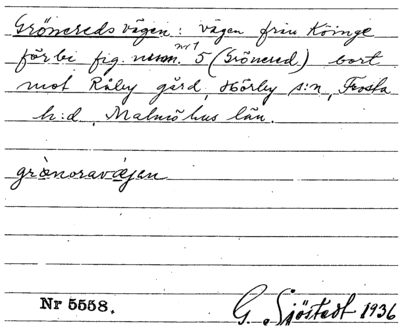 Grönereds vägen: vägen från Köinge
förbi fig. numm. nr 1 5 (Grönered) bort
mot Råby gård, Hörby s:n, Frosta
h:d, Malmöhus län.
grönoravägen
Nr 5558. G. Sjöstedt 1936